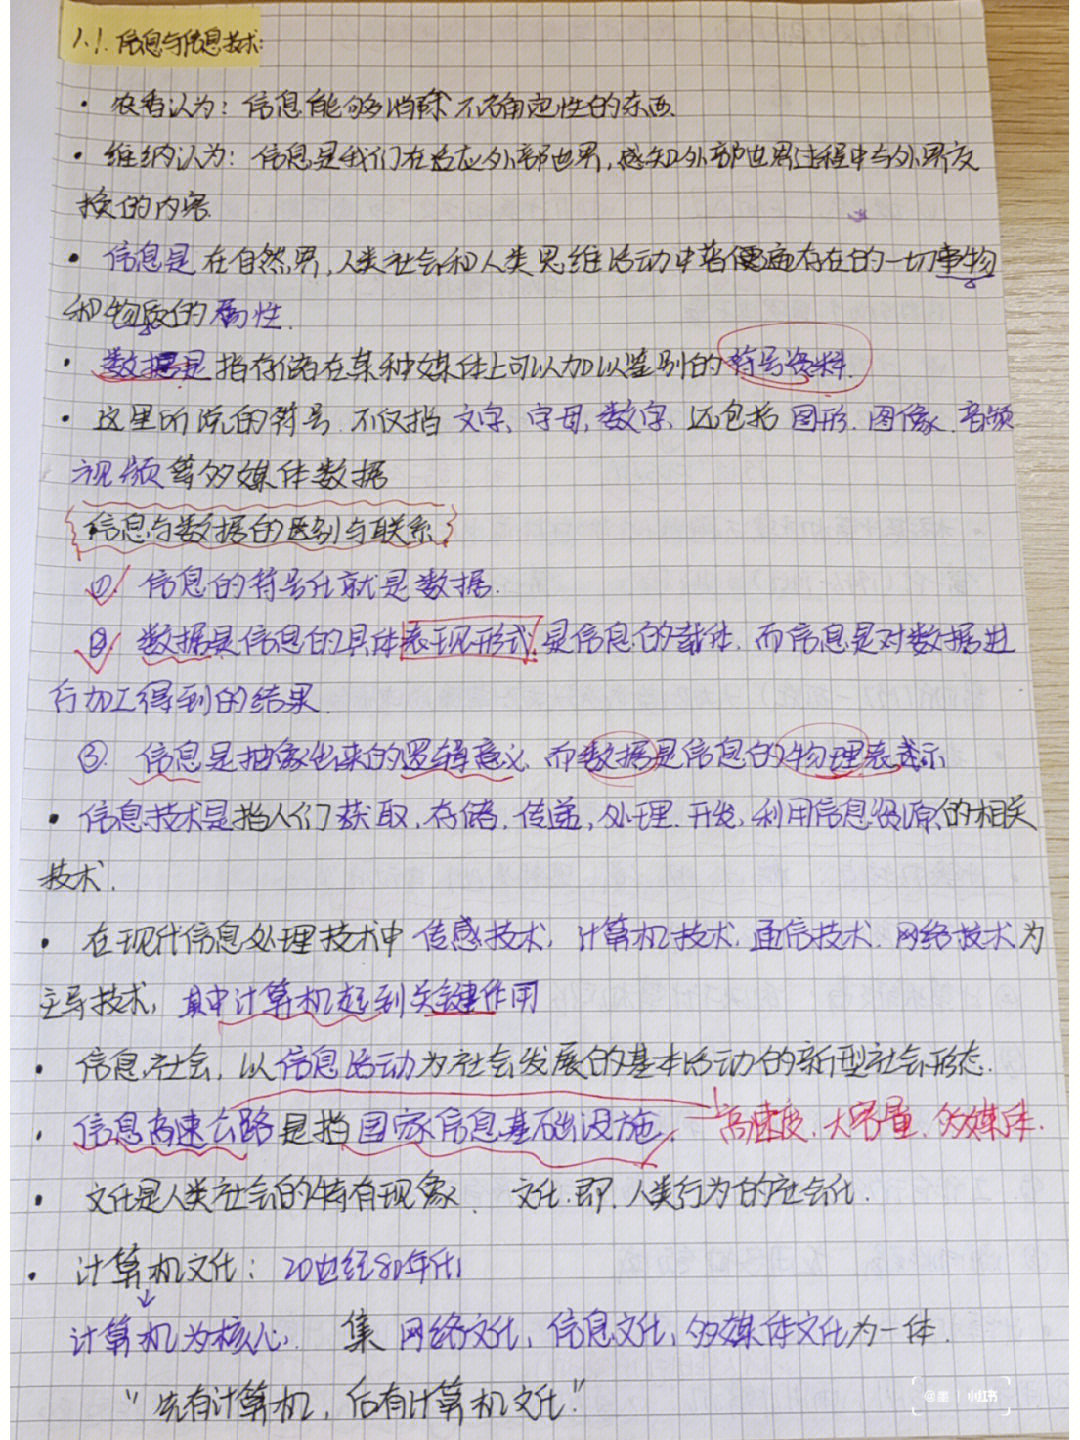 1.1. 信息与信息技术:
· 农香认为: 信息能够消除不确定性的东西.
· 维纳认为: 信息是我们在适应外部世界,感知外部世界过程中与外界交
换的内容.
· 信息是在自然界,人类社会和人类思维活动中普遍存在的一切事物
和物质的属性.
· 数据是指存储在某种媒体上可以加以鉴别的符号资料.
· 这里所说的符号.不仅指 文字、字母,数字、还包括 图形.图像.音频
视频等多媒体数据
信息与数据的区别与联系
① 信息的符号化就是数据.
② 数据是信息的具体表现形式.是信息的载体.而信息是对数据进
行加工得到的结果.
③. 信息是抽象出来的逻辑意义.而数据是信息的物理表示
· 信息技术是指人们获取.存储.传递,处理.开发,利用信息资源的相关
技术.
· 在现代信息处理技术中传感技术,计算机技术.通信技术.网络技术为
主导技术,其中计算机起到关键作用
· 信息社会,以信息活动为社会发展的基本活动的新型社会形态.
· 信息高速公路是指国家信息基础设施. 高速度.大容量.多媒体.
· 文化是人类社会的特有现象. 文化.即.人类行为的社会化.
· 计算机文化: 20世纪80年代
计算机为核心. 集 网络文化,信息文化,多媒体文化为一体.
“先有计算机,后有计算机文化”
@墨 | 小红书